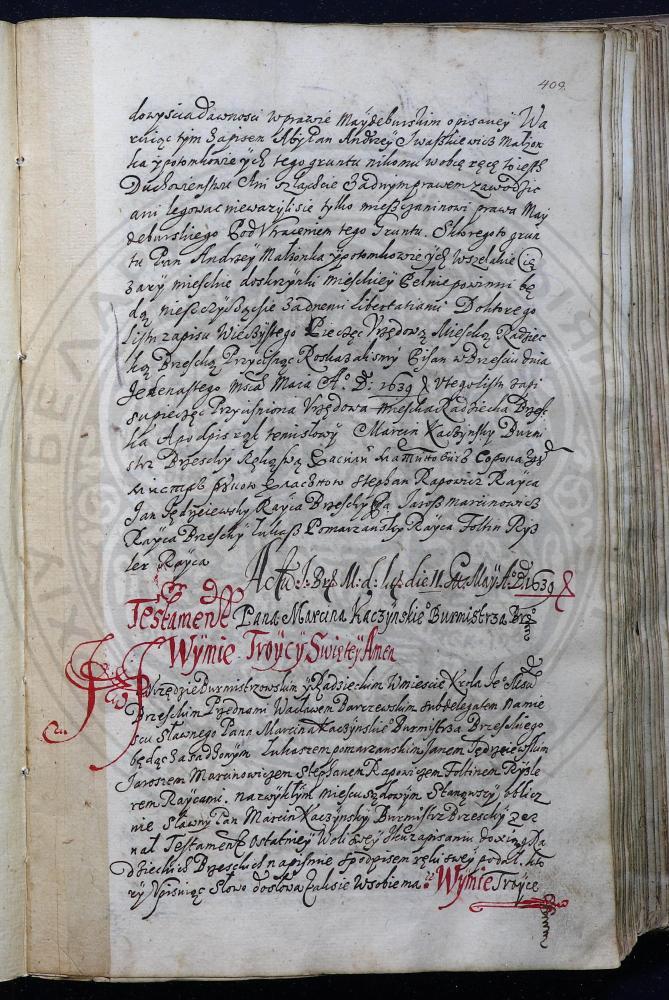 409.
dowyścia dawnosci wprawie Maydeburskim opisaney Wa
ruiąc tym zapisem Aby Pan Andrzey Iwaszkiewicz Małzon
ka y potomkowie ych tego gruntu nikomu wobcą ręcę to iesth
Duchowienstwu Ani szlachcie zadnym prawem zawodzic
ani legowac niewazyli sie tylko miesczaninowi prawa May
deburskiego Pod vtraceniem tego Gruntu. Sktorego to grun
tu Pan Andrzey Małzonka y potomkowie ych wszelakie cię
zary mieskie doskrzynki mieskiey pełnic powinni bę
dą nieszczycącsie zadnemi libertatiami Doktorego
listu zapisu Wieczystego Pieczęc Vrzędową Mieską Radziec
ką Brzeską Przycisnąc Roskazalismy Pisan w Brzesciu dnia
Iedenastego Msca Maia A° D: 1639 Vtego listu zapi
su pieczęc Przycisniona Vrzędowa mieska Radziecka Brzes
ka A podpis rąk temisłowy Marcin Kaczynsky Burmi
strz Brzesky Ręką swą
Stephan Kapowicz Rayca
Jan Jędrzeiewsky Rayca Brzesky Jarosz Marcinowicz
Rayca Brzesky Łukasz Pomarzansky Rayca Foltin Ryz
ler Rayca
die 11 May A° D 1639
Testament Pana Marcina Kaczynskie° Burmistrza Brz°
Wymie Troycy Swiętey Amen
Na Vrzędzie Burmistrzowskim y Radzieckim Wmiescie Krola Je° Msci
Brzeskim Przednami Wacławem Barczewskim subdelegatem na mie
scu sławnego Pana Marcina Kaczynskie° Burmistrza Brzeskiego
będąc zasadzonym Łukaszem pomarzanskim Janem Jędrzeiewskim
Jaroszem Marcinowiczem Stephanem Kapowiczem Foltinem Ryzle
rem Raycami. nazwykłym mieiscu sądowym Stanąwszy oblicz
nie sławny Pan Marcin Kaczynsky Burmistrz Brzesky zez
nał Testament ostatniey Woli swey zapisaniu do xiąg Ra
dzieckich Brzeskich napismie spodpisem ręki swey podał. kto
ry Wpisuiąc Słowo dosłowa taksie Wsobie ma. Wymie Troyce